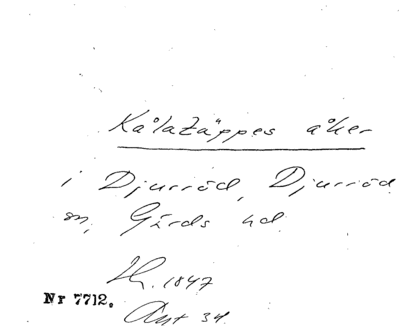 Kålatäppes åker
i Djurröd, Djurröd
sn, Gärds hd.
1847
Nr 7712.
Akt 34.